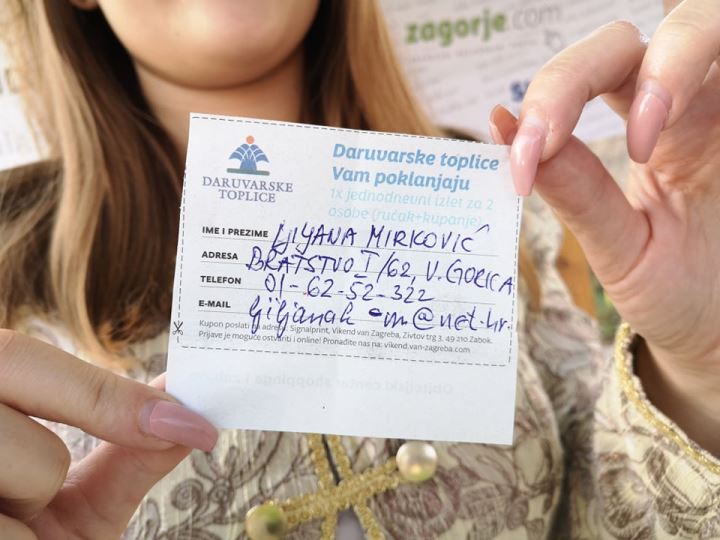 zagorje.com
DARUVARSKE
TOPLICE
Daruvarske toplice
Vam poklanjaju
1x jednodnevni izlet za 2
osobe (ručak+kupanje)
IME I PREZIME LJILJANA MIRKOVIĆ
ADRESA BRATSTVO I/62, V. GORICA
TELEFON 01-62-52-322
E-MAIL @net.hr.
Kupon poslati na adresu: Signalprint, Vikend van Zagreba, Živtov trg 3, 49 210 Zabok.
Prijave je moguće ostvariti i online! Pronađite nas na: vikend.van-zagreba.com